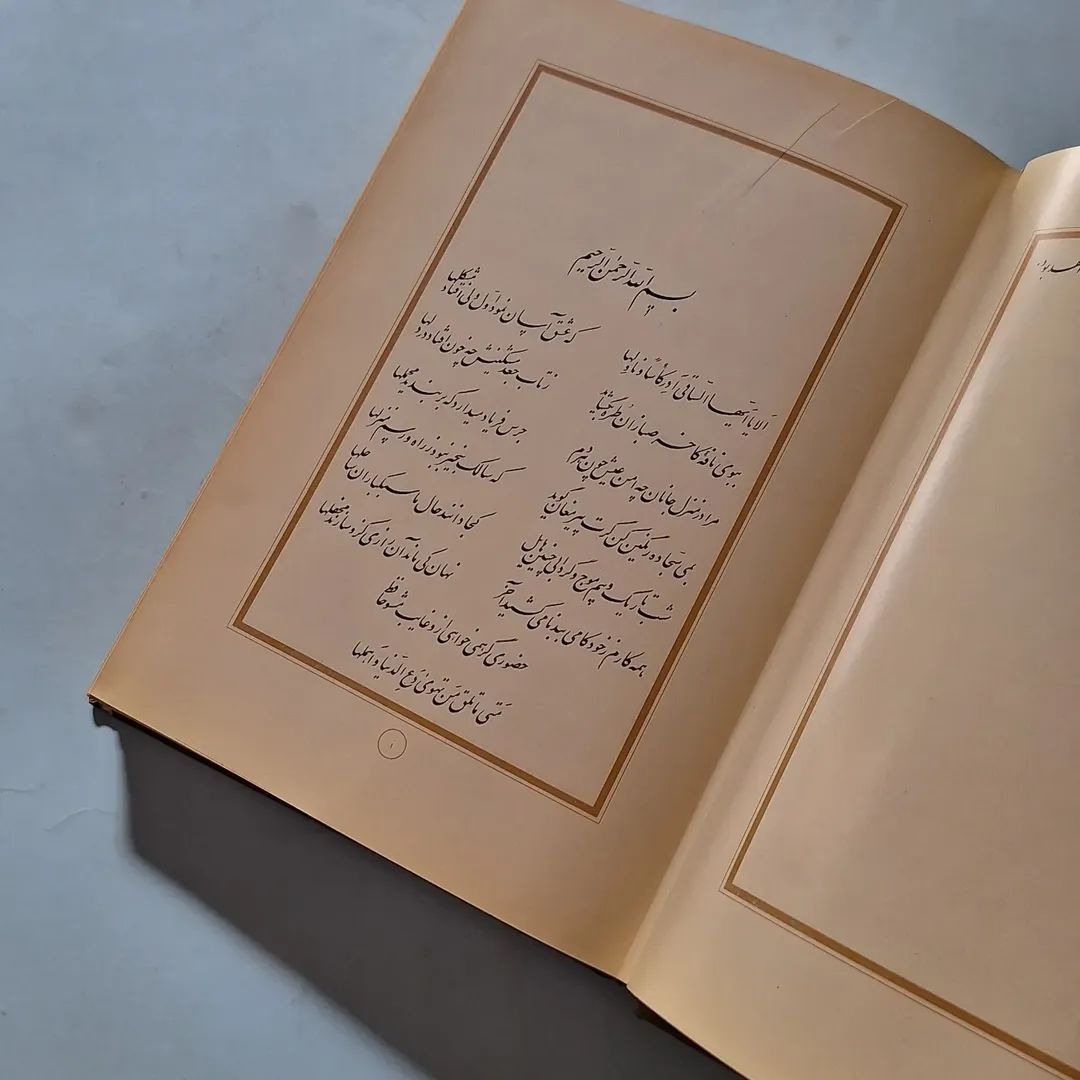 بسم الله الرحمن الرحیم
الا یا ایها الساقی ادر کأسا و ناولها که عشق آسان نمود اول ولی افتاد مشکلها
ببوی نافهٔ کاخر صبا زان طره بگشاید ز تاب جعد مشکینش چه خون افتاد در دلها
مرا در منزل جانان چه امن عیش چون هر دم جرس فریاد میدارد که بربندید محملها
بمی سجاده رنگین کن گرت پیر مغان گوید که سالک بیخبر نبود ز راه و رسم منزلها
شب تاریک و بیم موج و گردابی چنین هایل کجا دانند حال ما سبکباران ساحلها
همه کارم ز خود کامی ببدنامی کشید آخر نهان کی ماند آن رازی کزو سازند محفلها
حضوری گر همی خواهی ازو غایب مشو حافظ
متی ما تلق من تهوی دع الدنیا و اهملها
۱